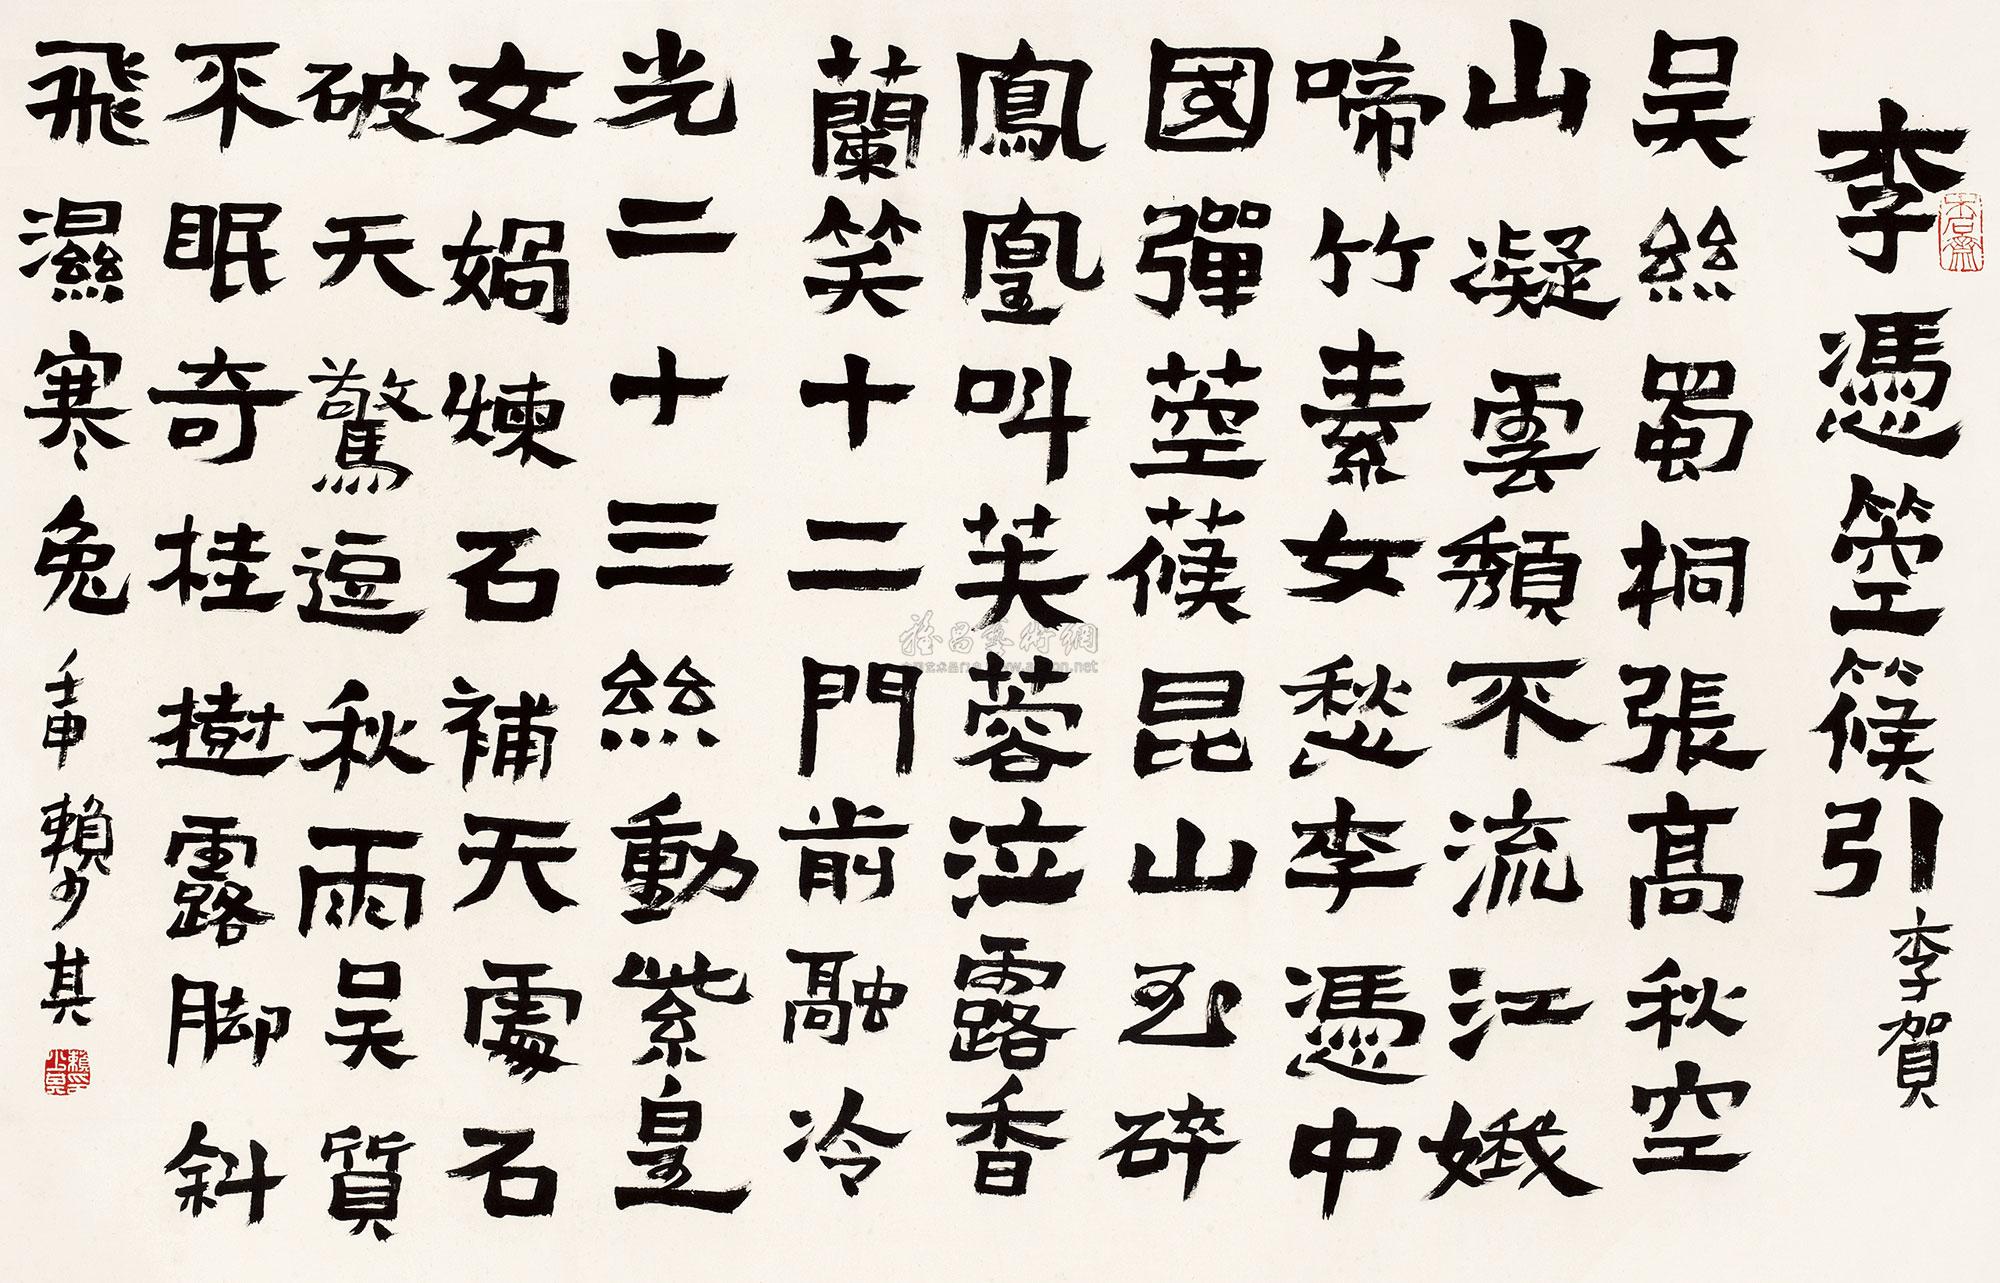 李憑箜篌引 李賀
吴絲蜀桐張髙秋空
山凝雲頽不流江娥
啼竹素女愁李憑中
國彈箜篌昆山玉碎
鳳凰叫芙蓉泣露香
蘭笑十二門前融冷
光二十三絲動紫皇
女媧煉石補天處石
破天驚逗秋雨吴質
不眠奇桂樹露脚斜
飛濕寒兔 壬申 賴少其
木石齋
雅昌藝術網